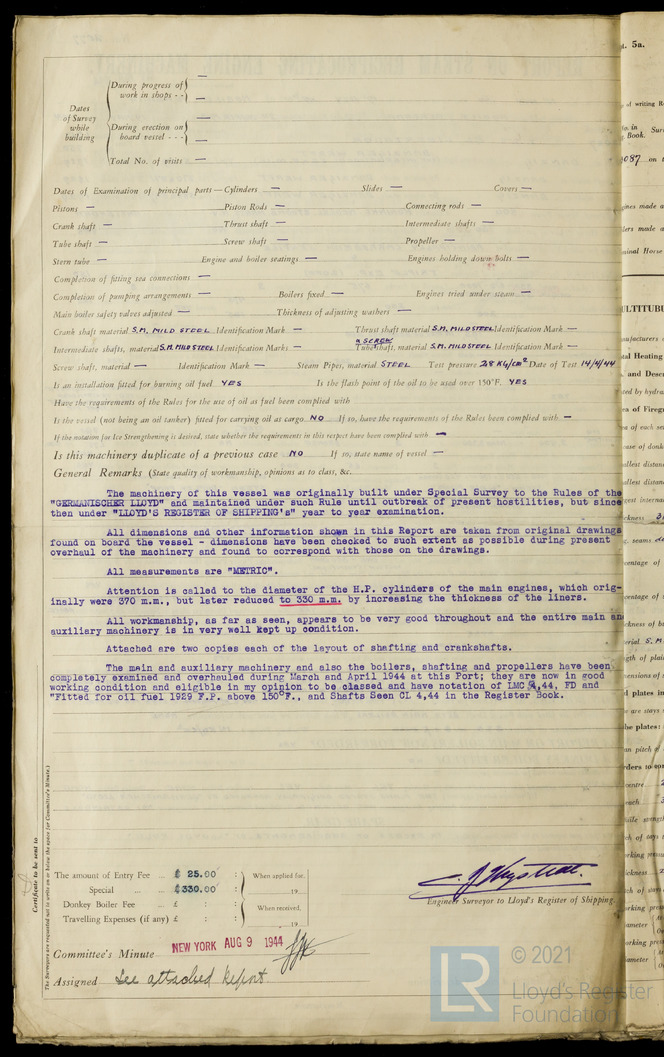 During progress of work in shops - - —
—
Dates of Survey while building
During erection on board vessel - - - —
—
Total No. of visits —
Dates of Examination of principal parts—Cylinders — Slides — Covers —
Pistons — Piston Rods — Connecting rods —
Crank shaft — Thrust shaft — Intermediate shafts —
Tube shaft — Screw shaft — Propeller —
Stern tube — Engine and boiler seatings — Engines holding down bolts —
Completion of fitting sea connections —
Completion of pumping arrangements — Boilers fixed — Engines tried under steam —
Main boiler safety valves adjusted — Thickness of adjusting washers —
Crank shaft material S.M. MILD STEEL Identification Mark — Thrust shaft material S.M. MILD STEEL Identification Mark —
Intermediate shafts, material S.M. MILD STEEL Identification Marks — & SCREW Tube shaft, material S.M. MILD STEEL Identification Mark —
Screw shaft, material — Identification Mark — Steam Pipes, material STEEL Test pressure 28 KG/CM² Date of Test 14/4/44
Is an installation fitted for burning oil fuel YES Is the flash point of the oil to be used over 150°F. YES
Have the requirements of the Rules for the use of oil as fuel been complied with
Is the vessel (not being an oil tanker) fitted for carrying oil as cargo NO If so, have the requirements of the Rules been complied with —
If the notation for Ice Strengthening is desired, state whether the requirements in this respect have been complied with —
Is this machinery duplicate of a previous case NO If so, state name of vessel —
General Remarks (State quality of workmanship, opinions as to class, &c.
The machinery of this vessel was originally built under Special Survey to the Rules of the
"GERMANISCHER LLOYD" and maintained under such Rule until outbreak of present hostilities, but since
then under "LLOYD'S REGISTER OF SHIPPING's" year to year examination.
All dimensions and other information shown in this Report are taken from original drawings
found on board the vessel - dimensions have been checked to such extent as possible during present
overhaul of the machinery and found to correspond with those on the drawings.
All measurements are "METRIC".
Attention is called to the diameter of the H.P. cylinders of the main engines, which orig-
inally were 370 m.m., but later reduced to 330 m.m. by increasing the thickness of the liners.
All workmanship, as far as seen, appears to be very good throughout and the entire main and
auxiliary machinery is in very well kept up condition.
Attached are two copies each of the layout of shafting and crankshafts.
The main and auxiliary machinery and also the boilers, shafting and propellers have been
completely examined and overhauled during March and April 1944 at this Port; they are now in good
working condition and eligible in my opinion to be classed and have notation of LMC 4,44, FD and
"Fitted for oil fuel 1929 F.P. above 150°F., and Shafts Seen CL 4,44 in the Register Book.
Certificate to be sent to
The Surveyors are requested not to write on or below the space for Committee's Minute.)
The amount of Entry Fee ... £ 25.00 : When applied for,
Special ... £ 330.00 : 19
Donkey Boiler Fee ... £ : : When received,
Travelling Expenses (if any) £ : : 19
Engineer Surveyor to Lloyd's Register of Shipping.
Committee's Minute NEW YORK AUG 9 1944
Assigned See attached Report
LR
© 2021
Lloyd's Register
Foundation